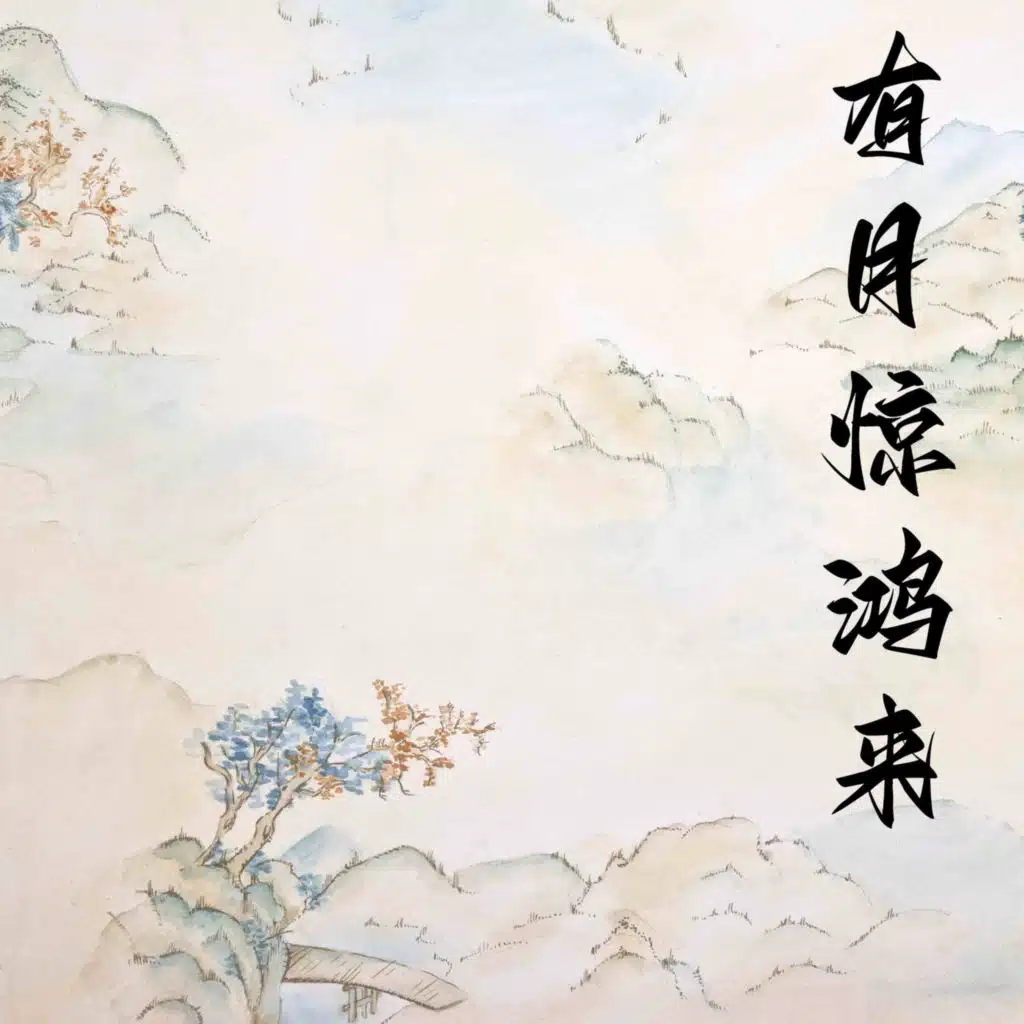 有月惊鸿来